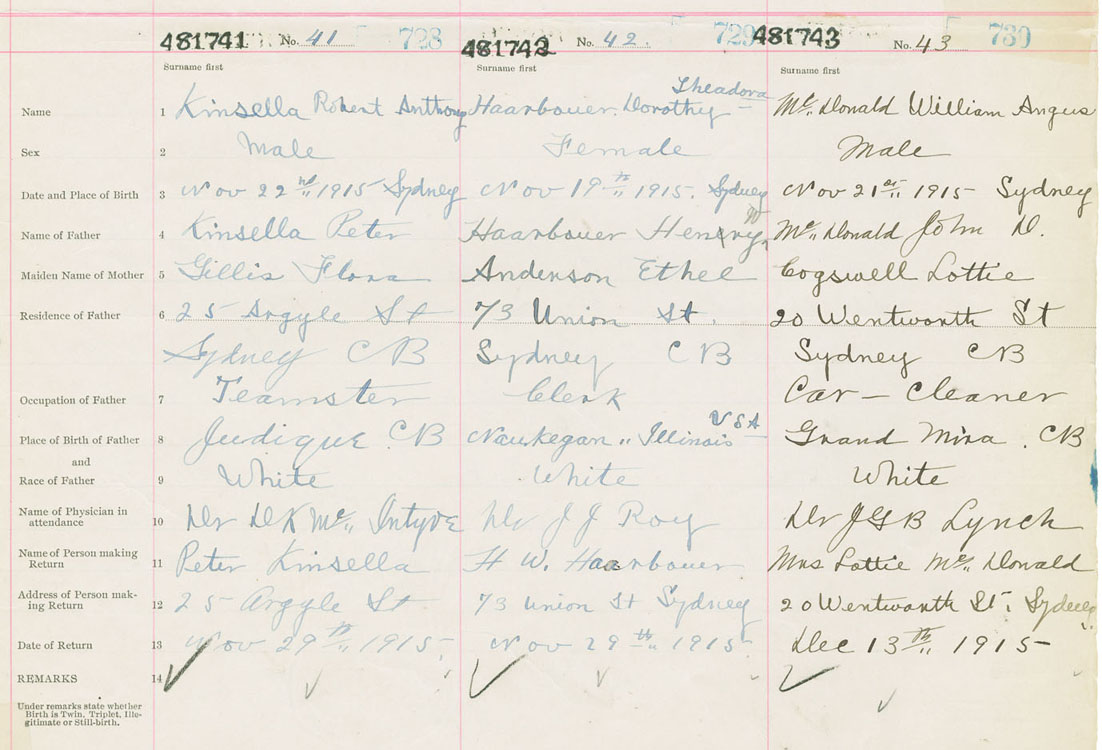 481741 No. 41 728 481742 No. 42. 729 481743 No. 43 730
Surname first Surname first Surname first
Theadora
Name 1 Kinsella Robert Anthony Haarbouer. Dorothy Mc Donald William Angus
Sex 2 Male Female Male
Date and Place of Birth 3 Nov 22nd 1915 Sydney Nov 19th 1915. Sydney Nov 21st 1915 Sydney
W
Name of Father 4 Kinsella Peter Haarbouer Henry Mc Donald John D.
Maiden Name of Mother 5 Gillis Flora Anderson Ethel Cogswell Lottie
Residence of Father 6 25 Argyle St 73 Union St. 20 Wentworth St
Sydney CB Sydney CB Sydney CB
Occupation of Father 7 Teamster Clerk Car - Cleaner
USA
Place of Birth of Father 8 Judique CB Naukegan Illinois Grand Mira. CB
and
Race of Father 9 White White White
Name of Physician in
attendance 10 Dr D K Mc Intyre Dr J J Roy Dr J G B Lynch
Name of Person making
Return 11 Peter Kinsella H W. Haarbouer Mrs Lottie Mc Donald
Address of Person mak-
ing Return 12 25 Argyle St 73 Union St Sydney 20 Wentworth St. Sydney
Date of Return 13 Nov 29th 1915 Nov 29th 1915 Dec 13th 1915
REMARKS 14
Under remarks state whether
Birth is Twin, Triplet, Ille-
gitimate or Still-birth.